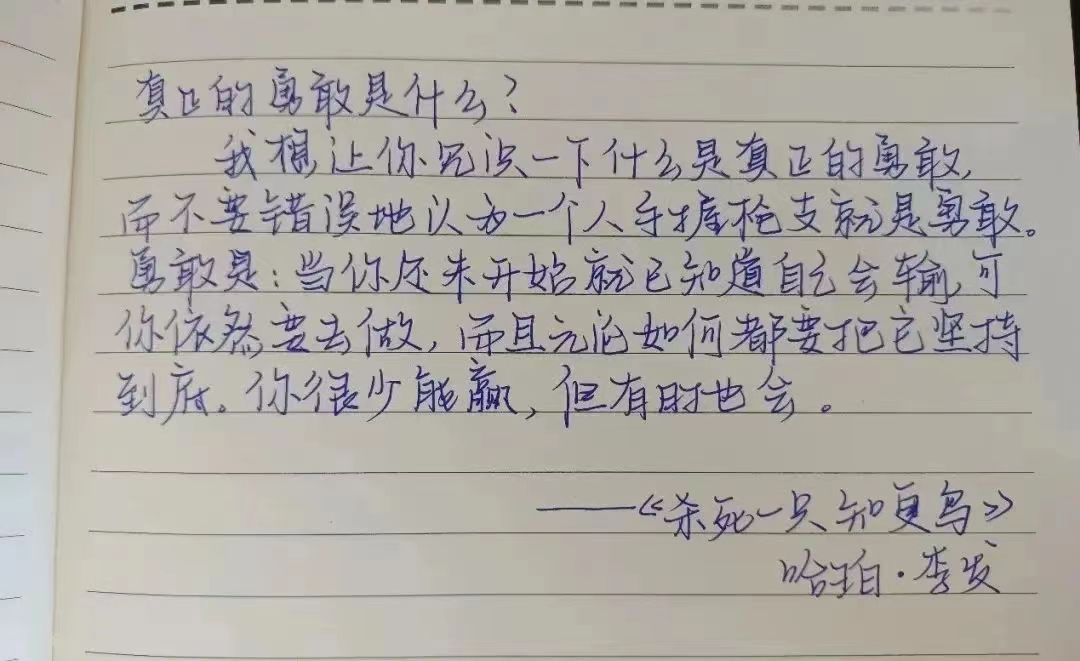 真正的勇敢是什么?
我想让你见识一下什么是真正的勇敢,
而不要错误地认为一个人手握枪支就是勇敢。
勇敢是:当你还未开始就已知道自己会输,可
你依然要去做,而且无论如何都要把它坚持
到底。你很少能赢,但有时也会。
——《杀死一只知更鸟》
哈珀·李